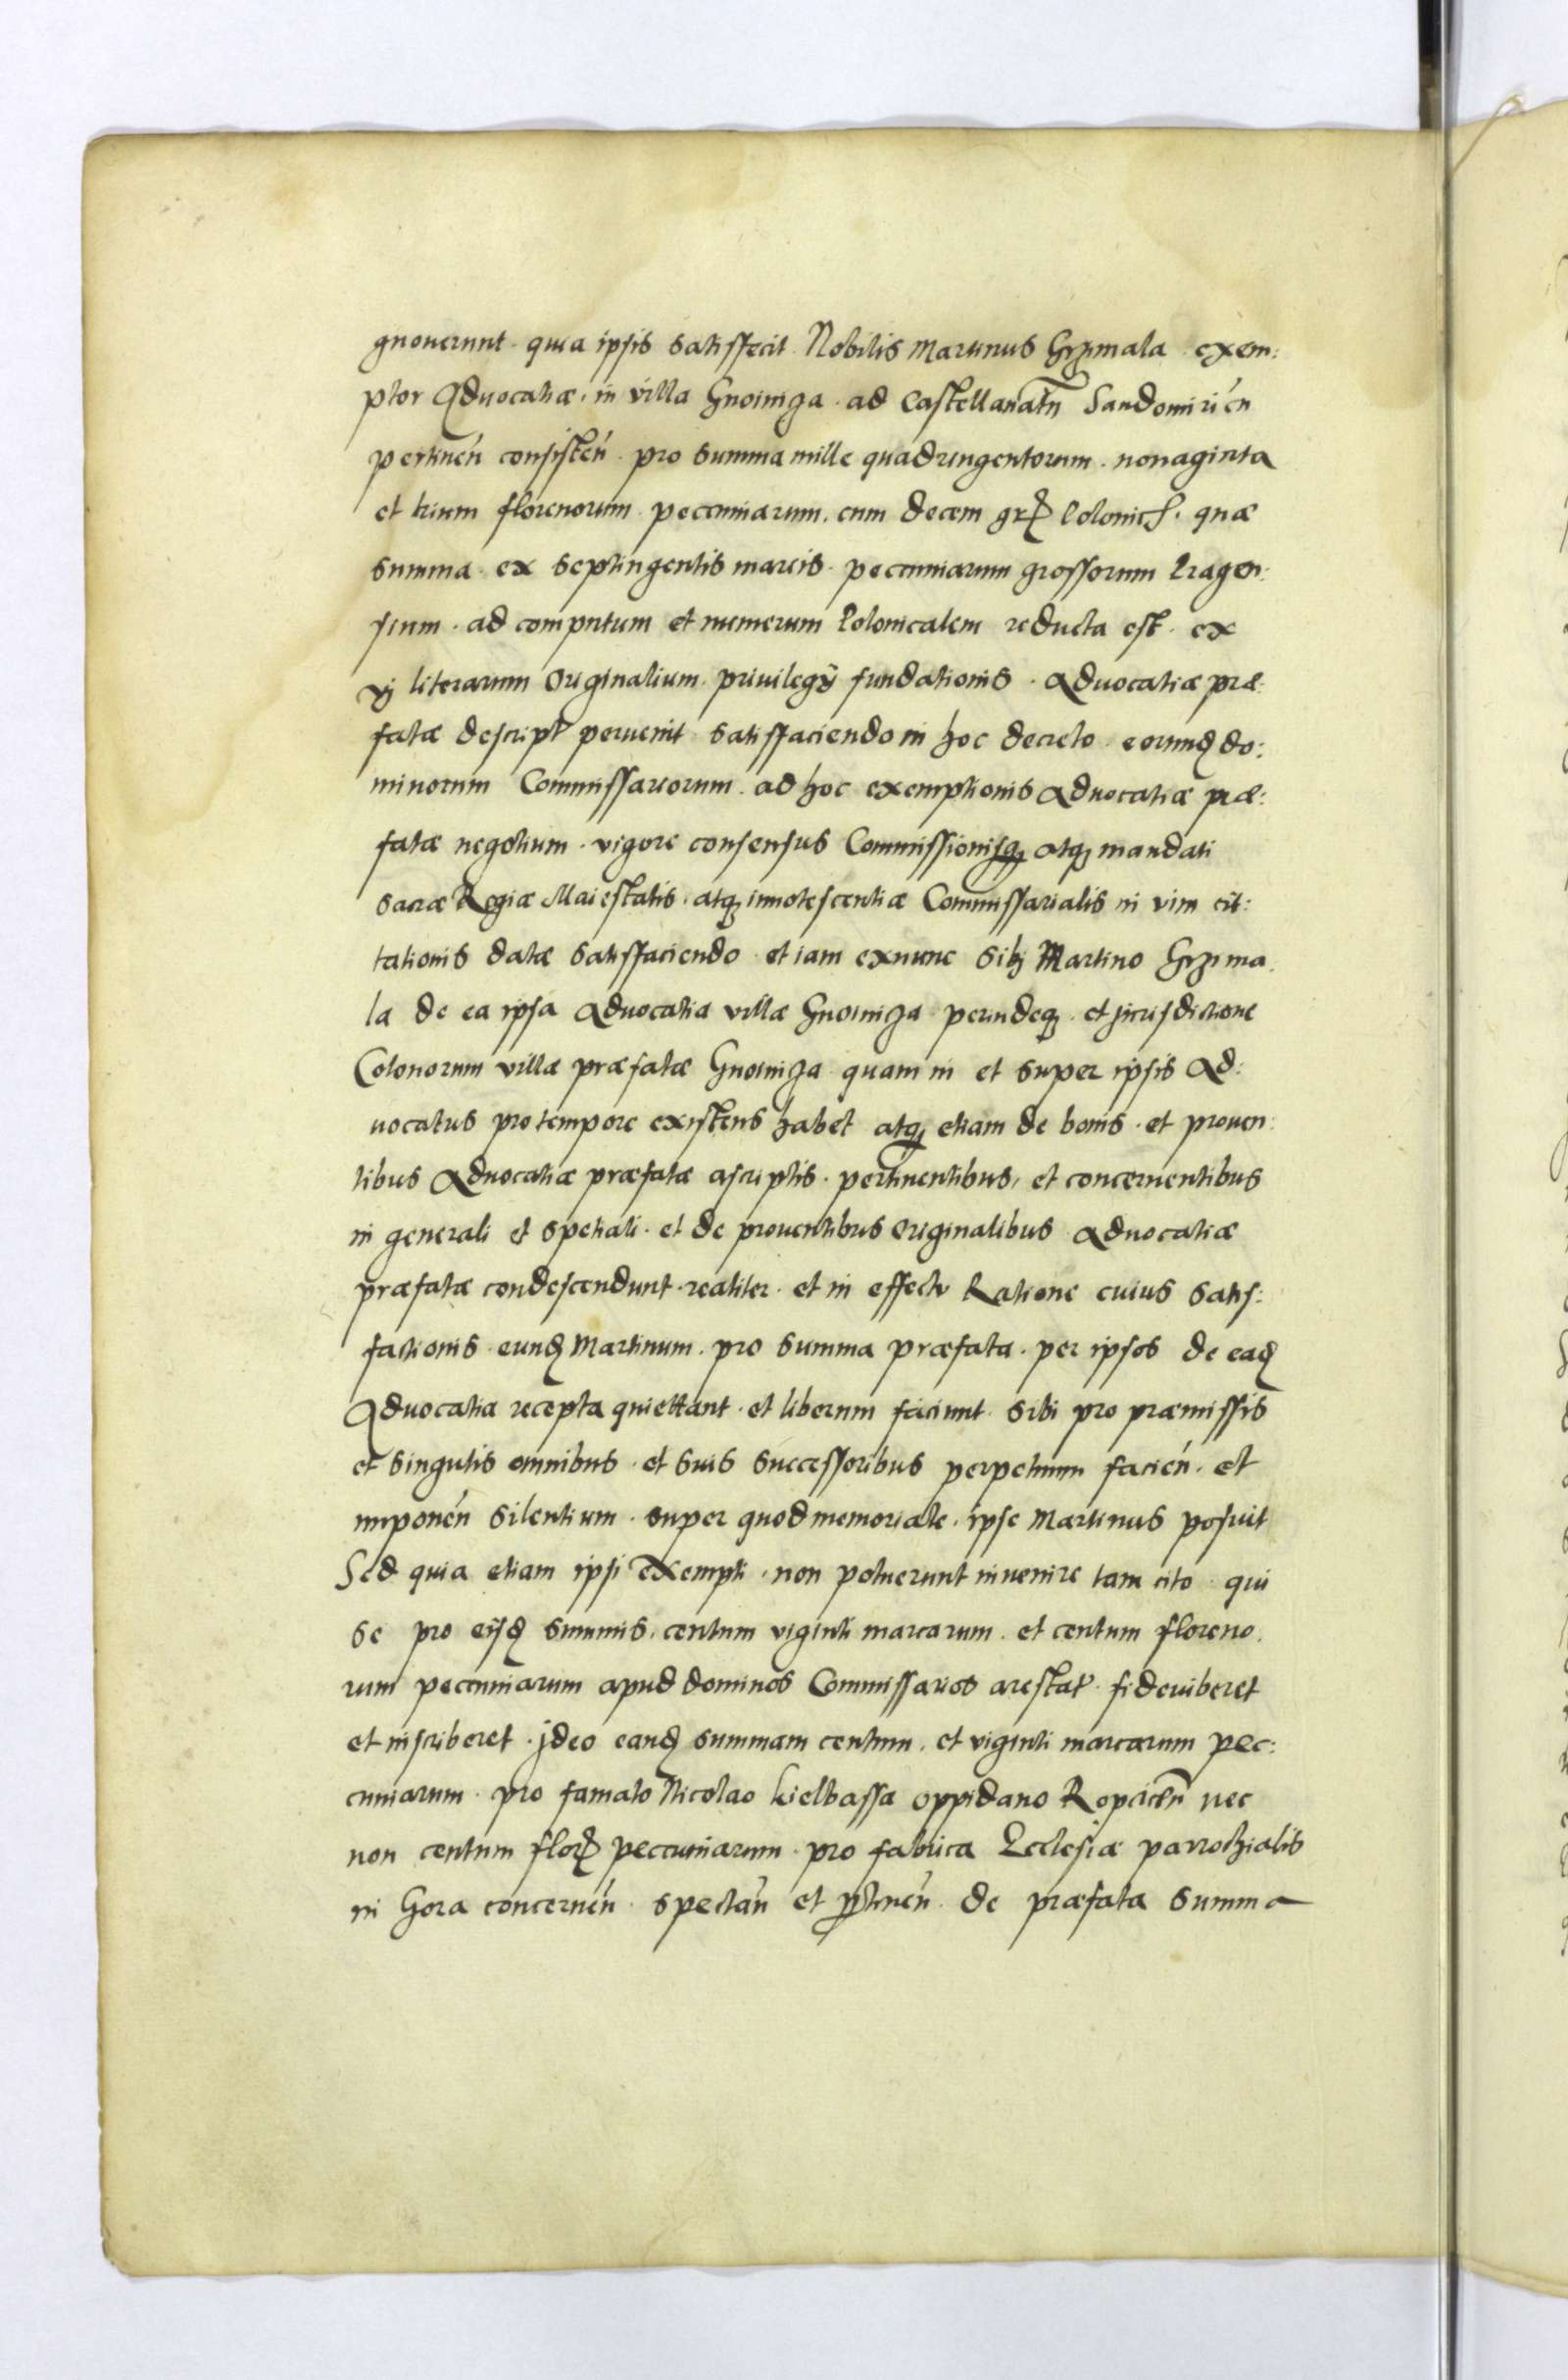 gnouerunt. quia ipsis satisfecit. Nobilis Martinus Grzimala. exem:
ptor Aduocatiæ. in villa Gnoiniga. ad Castellanatū Sandomirień
pertineń consisteń. pro summa mille quadringentorum. nonaginta
et trium florenorum. pecuniarum. cum decem gr Polonich. quæ
summa. ex septingentis marcis. pecuniarum grossorum Pragen:
sium. ad computum et numerum Polonicalem reducta est. ex
vj literarum Originalium. priuilegÿ fundationis. Aduocatiæ præ:
fatæ descript peruenit satisfaciendo in hoc decreto. eorunq do:
minorum Commissariorum. ad hoc exemptionis Aduocatiæ præ:
fatæ negotium. vigore consensus Commissionisq; atq; mandati
sacræ Regiæ Maiestatis. atq; innotescentiæ Commissarialis in vim cit:
tationis datæ satisfaciendo. et iam exnunc sibj Martino Grzima.
la de ea ipsa Aduocatia villæ Gnoiniga perindeq;. et jurisdictione
Colonorum villæ præfatæ Gnoiniga quam in et super ipsis Ad:
uocatus pro tempore existens habet atq; etiam de bonis. et prouen:
tibus Aduocatiæ præfatæ ascriptis. pertinentibus, et concernentibus
in generali et spetiali. et de prouentibus Originalibus Aduocatiæ
præfatæ condescendunt. realiter. et in effectu Ratione cuius satis:
factionis. eunq Martinum. pro summa præfata. per ipsos de eaq
Aduocatia recepta quiettant. et liberum faciunt. sibi pro præmissis
et singulis omnibus. et suis successoribus perpetuum facień. et
imponeń silentium. super quod memoriale. ipse Martinus posuit
Sed quia etiam ipsi exempti. non potuerunt inuenire tam cito qui
se pro eisq summis. centum viginti marcarum. et centum floreno.
rum pecuniarum apud dominos Commissarios arestat. fideiuberet
et inscriberet. jdeo eanq summam centum. et viginti marcarum pec:
cuniarum. pro famato Nicolao kielbassa oppidano Ropcicēn nec
non centum flor peccuniarum. pro fabrica Ecclesiæ parrochialis
in Gora concerneń. spectań et ptineń. de præfata summa